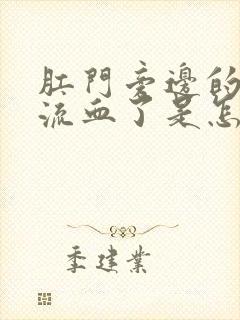 肛門旁邊的
流血了是怎
季建業